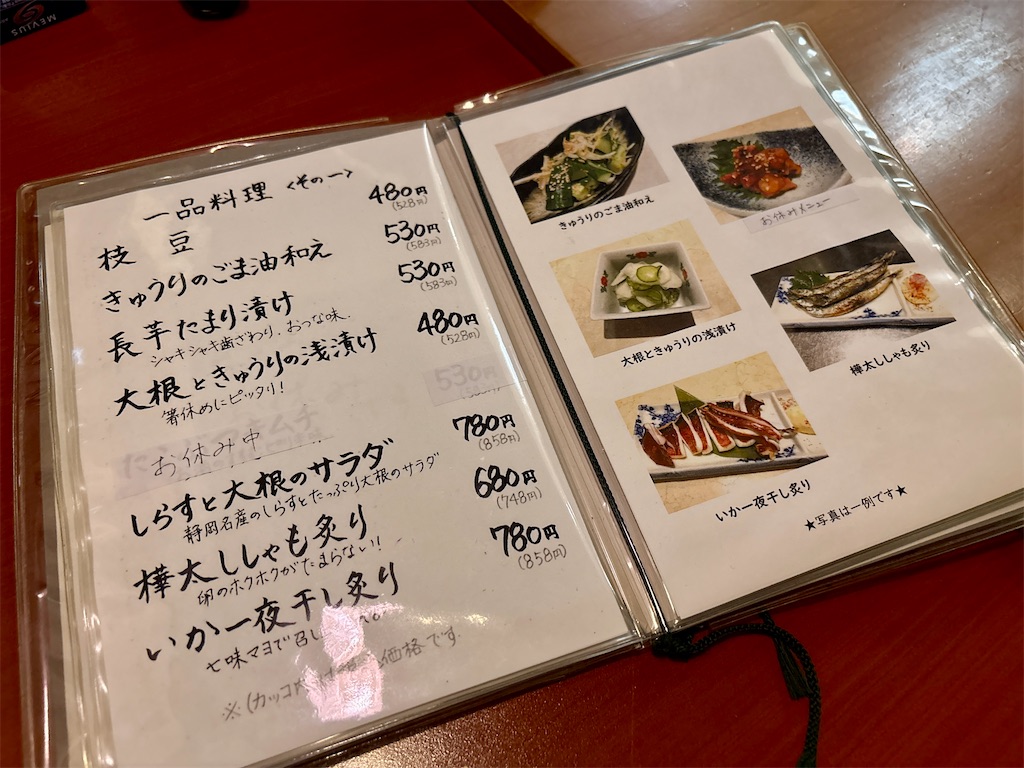 MEVIUS
一品料理 〈その一〉
枝豆 480円
(528円)
きゅうりのごま油和え 530円
(583円)
長芋たまり漬け 530円
(583円)
シャキシャキ歯ざわり、おつな味。
大根ときゅうりの浅漬け 480円
(528円)
箸休めにピッタリ!
お休み中
530円
しらすと大根のサラダ 780円
(858円)
静岡名産のしらすとたっぷり大根のサラダ
樺太ししゃも炙り 680円
(748円)
卵のホクホクがたまらない!
いか一夜干し炙り 780円
(858円)
七味マヨで召し
※(カッコ 価格です。
きゅうりのごま油和え
お休みメニュー
大根ときゅうりの浅漬け
樺太ししゃも炙り
いか一夜干し炙り
★写真は一例です★